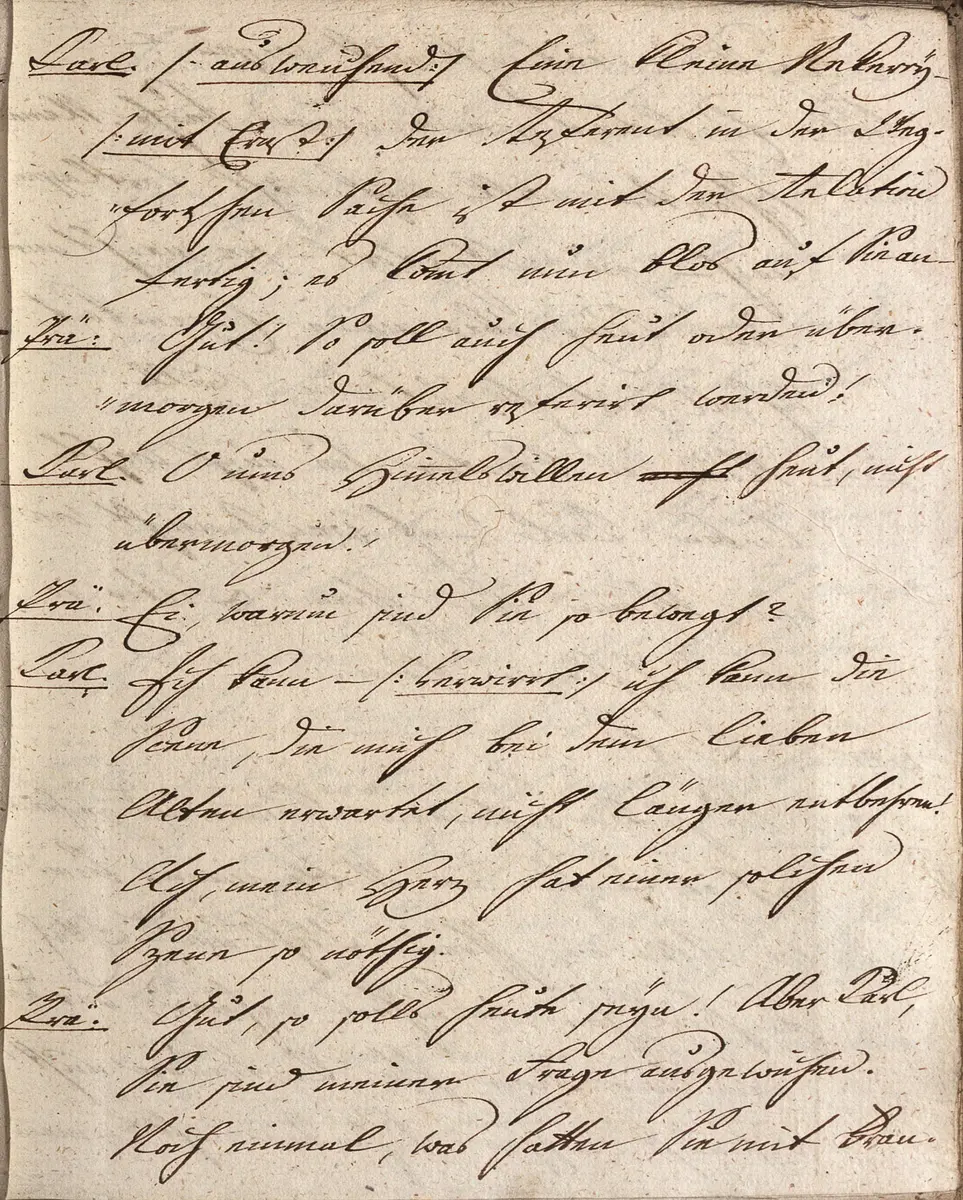 Karl. /: ausweichend :/ Eine kleine Nekerey –
/: mit Ernst :/ der Referent in der Weg-
"fortschen Sache ist mit der Relation
fertig; es komt nun blos auf Sie an –
Prä: Gut! So soll auch heut oder über-
"morgen darüber referirt werden!
Karl. O ums Himmelswillen heut, nicht
übermorgen!
Prä. Ei, warum sind Sie so bewegt?
Karl. Ich kann – /: verwirrt :/ ich kann die
Scene, die mich bei dem lieben
Alten erwartet, nicht länger entbehren!
Ach, mein Herz hat einer solchen
Szene so nöthig.
Prä: Gut, so solls heute seyn! Aber Karl,
Sie sind meiner Frage ausgewichen.
Noch einmal, was hatten Sie mit Bran-